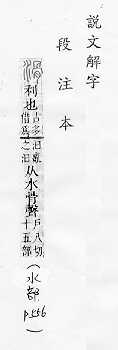 說文解字
段注本
滑 利也 古多借爲汩亂之汩 从水骨聲 戶八切十五部 (水部 p.556)